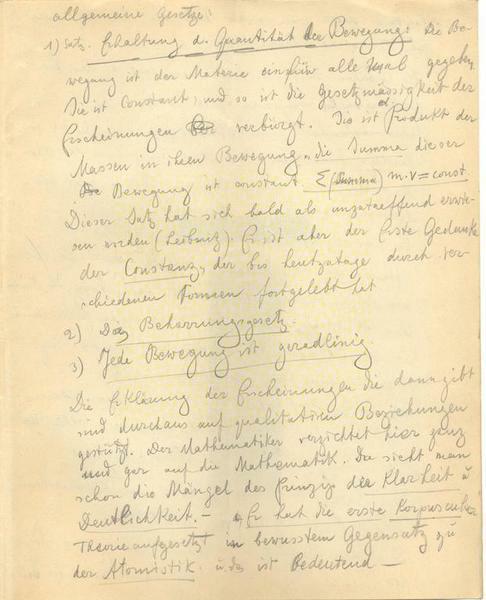 allgemeine Gesetze:
1) Satz. Erhaltung d. Quantität der Bewegung: Die Be-
wegung ist der Materie ein für alle Mal gegeben.
Sie ist Constant, und so ist die Gesetzmässigkeit der
Erscheinungen verbürgt. Sie ist Produkt der
Massen in ihren Bewegung, die Summa dieser
Bewegung ist constant Σ (Summa) m.v = const
Dieser Satz hat sich bald als unzutreffend erwie-
sen worden (Leibnitz). Er ist aber der Erste Gedanke
der Constanz, der bis heutzutage durch ver-
schiedenen Formen fortgelebt hat
2) Das Beharrungsgesetz.
3) Jede Bewegung ist geradlinig.
Die Erklärung der Erscheinungen die dann gibt
sind durchaus auf qualitativen Beziehungen
gestützt. Der Mathematiker verzichtet hier ganz
und gar auf die Mathematik. Da sieht man
schon die Mängel des Prinzips der Klarheit u
Deutlichkeit. – Er hat die erste Korpuscular
Theorie aufgesetzt in bewusstem Gegensatz zu
der Atomistik. u. das ist Bedeutend —